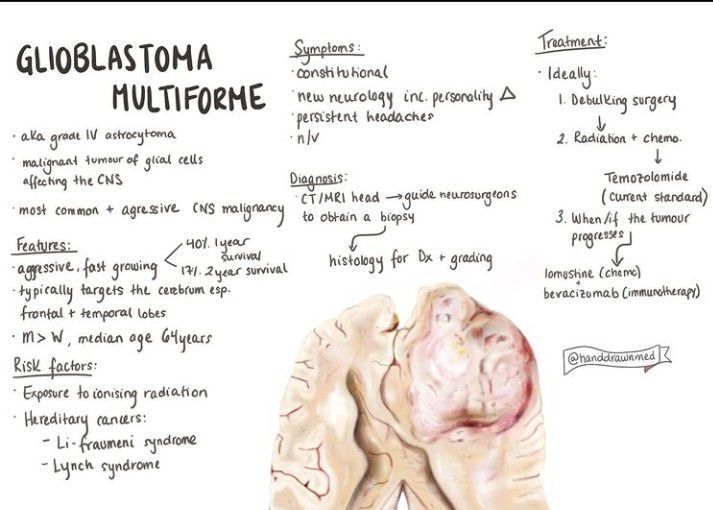 GLIOBLASTOMA
MULTIFORME
· aka grade IV astrocytoma
· malignant tumour of glial cells
affecting the CNS
· most common + agressive CNS malignancy
Features:
· aggressive, fast growing
40% 1 year
survival
17% 2 year survival
· typically targets the cerebrum esp.
frontal + temporal lobes
· M > W, median age 64 years
Risk factors:
· Exposure to ionising radiation
· Hereditary cancers:
- Li-fraumeni syndrome
- Lynch syndrome
Symptoms:
· constitutional
· new neurology inc. personality Δ
· persistent headaches
· n/v
Diagnosis:
· CT/MRI head → guide neurosurgeons
to obtain a biopsy
histology for Dx + grading
Treatment:
· Ideally:
1. Debulking surgery
↓
2. Radiation + chemo.
↓
Temozolomide
(current standard)
3. When/if the tumour
progresses
lomustine (chemo)
+
bevacizumab (immunotherapy)
@handdrawnmed